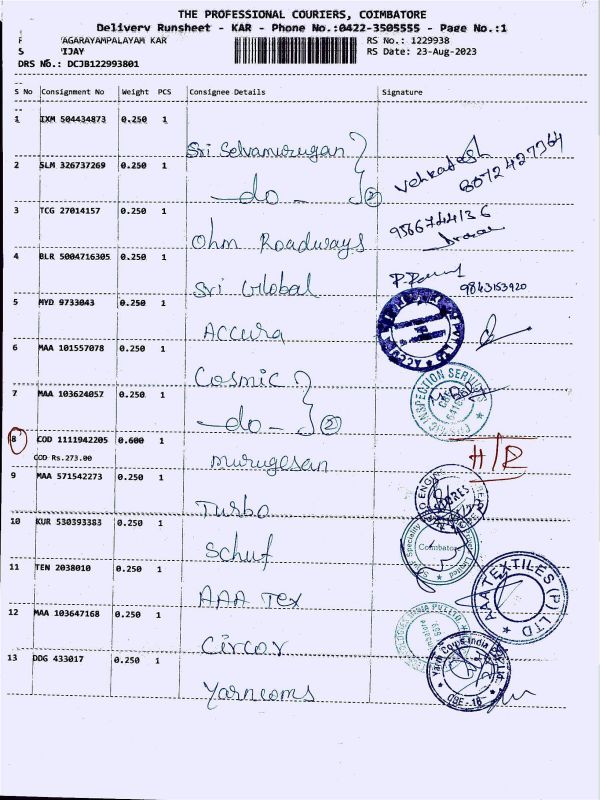 THE PROFESSIONAL COURIERS, COIMBATORE
Delivery Runsheet - KAR - Phone No.:0422-3505555 - Page No.:1
AGARAYAMPALAYAM KAR RS No.: 1229938
IJAY RS Date: 23-Aug-2023
DRS No.: DCJB122993801
S No Consignment No Weight PCS Consignee Details Signature
1 IXM 504434873 0.250 1 Sri Selvamurugan
2 SLM 326737269 0.250 1 —do— 2 Venkatesh 8072427364
3 TCG 27014157 0.250 1 Ohm Roadways 9566744136
4 BLR 5004716305 0.250 1 Sri Global 9843153920
5 MYD 9733043 0.250 1 Accura
6 MAA 101557078 0.250 1 Cosmic
7 MAA 103624057 0.250 1 —do— 2 INSPECTION SERVICES
8 COD 1111942205 0.600 1 Murugesan H/R
COD Rs.273.00
9 MAA 571542273 0.250 1 Turbo
10 KUR 530393383 0.250 1 Schuf Coimbatore
11 TEN 2038010 0.250 1 AAA Tex AAA TEXTILES (P) LTD
12 MAA 103647168 0.250 1 Circor
13 DDG 433017 0.250 1 Yarncoms Yarn Coms India CBE-18